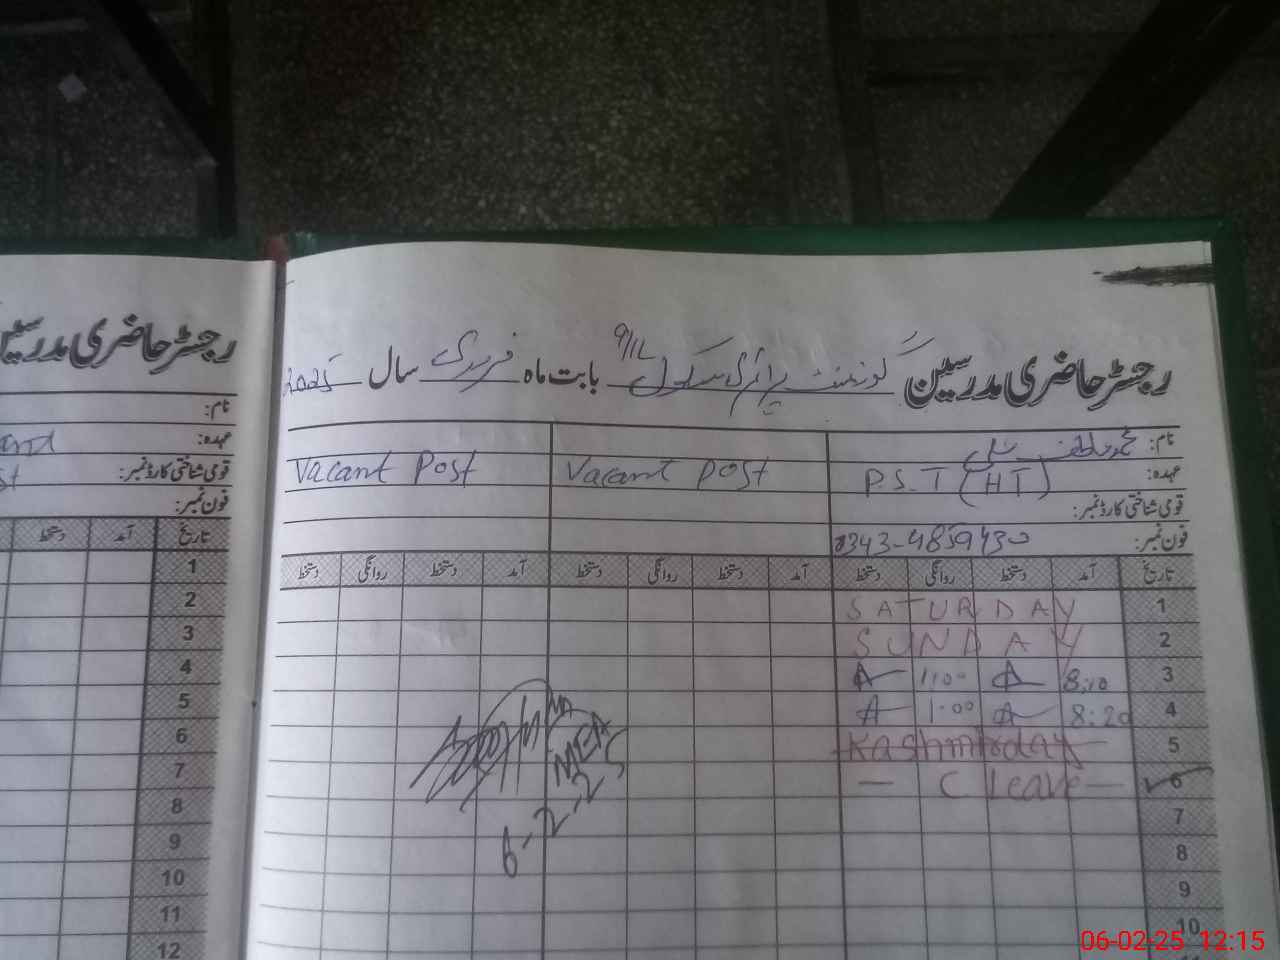 رجسٹر حاضری مدرسین گورنمنٹ پرائمری سکول 9/11 بابت ماہ فروری سال 2025
نام: محمد
عہدہ: P.S.T (HT) Vacant Post Vacant Post
قومی شناختی کارڈ نمبر:
فون نمبر: 0343-4859430
تاریخ آمد دستخط روانگی دستخط آمد دستخط روانگی دستخط آمد دستخط روانگی دستخط
1 SATURDAY
2 SUNDAY
3 8:10 A 1:00 A
4 8:20 A 1:00 A
5 Kashmirday
6 — C Leave —
7
8
9
10
MEA
6-2-25
رجسٹر حاضری
نام:
عہدہ:
قومی شناختی کارڈ نمبر:
فون نمبر:
تاریخ آمد دستخط
1
2
3
4
5
6
7
8
9
10
11
12
06-02-25 12:15